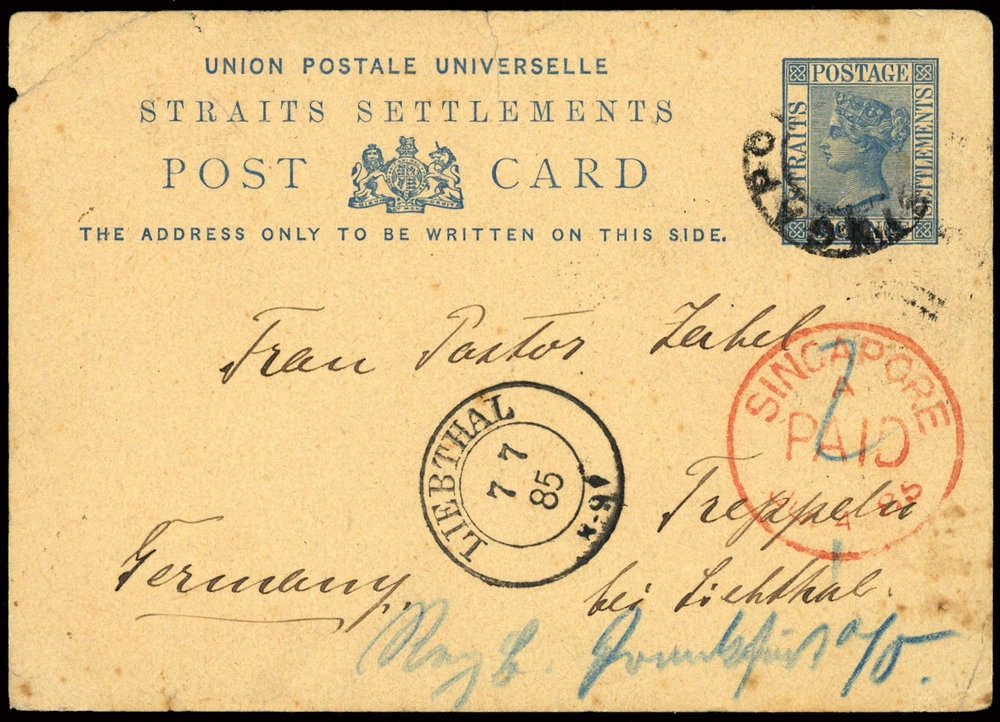 UNION POSTALE UNIVERSELLE
STRAITS SETTLEMENTS
POST CARD
THE ADDRESS ONLY TO BE WRITTEN ON THIS SIDE.
POSTAGE
STRAITS
SETTLEMENTS
Frau Pastor Zabel
SINGAPORE
A
PAID
4 85
2
LIEBTHAL
7 7
85
Treppeln
Germany.
bei Liebthal.
Reg B. Frankfurt a/O.